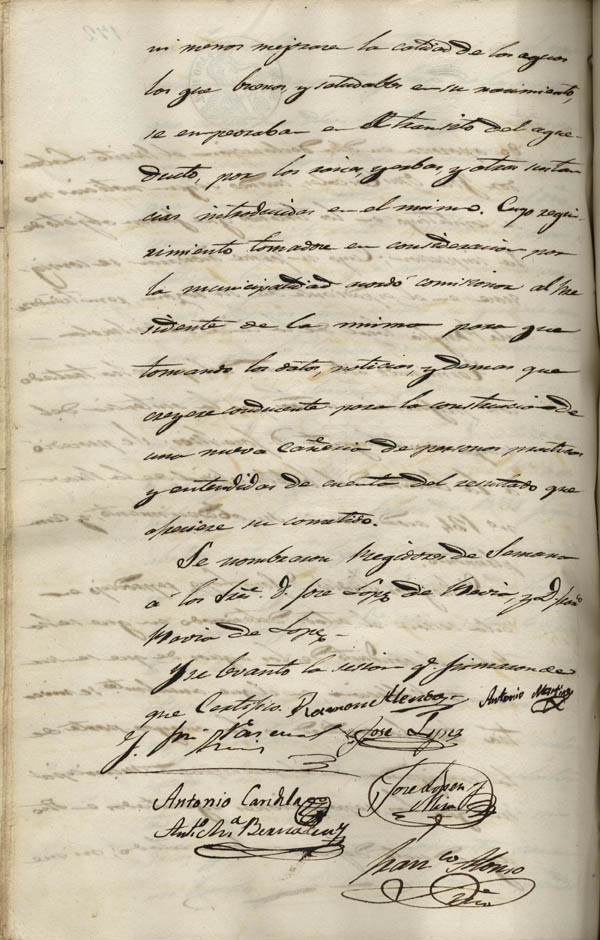 ni menos mejorare la calidad de las aguas
los que buenos, y saludables en su nacimiento,
se empeoraban en el transito del aque-
ducto, por las raices, yerbas, y otras sustan
cias introducidas en el mismo. Cuyo reque-
rimiento tomadose en consideracion por
la municipalidad acordó comisionar al Pre
sidente de la misma para que
tomando los datos, noticias, y demas que
creyere conducente para la construccion de
una nueva cañeria de personas practicas
y entendidas de cuenta del resultado que
ofreciere su cometido.
Se nombraron Regidores de Semana
á los Sres. D. Jose Lopz de y D.
de Lopz
Y se levantó la sesion q. firmaron de
que Certifico. Ramon Antonio Martinez
Jose Lopez
Antonio Candela
Anto. Ma. Bernabeu
Jose Lopez
Mira
Franco Alonso